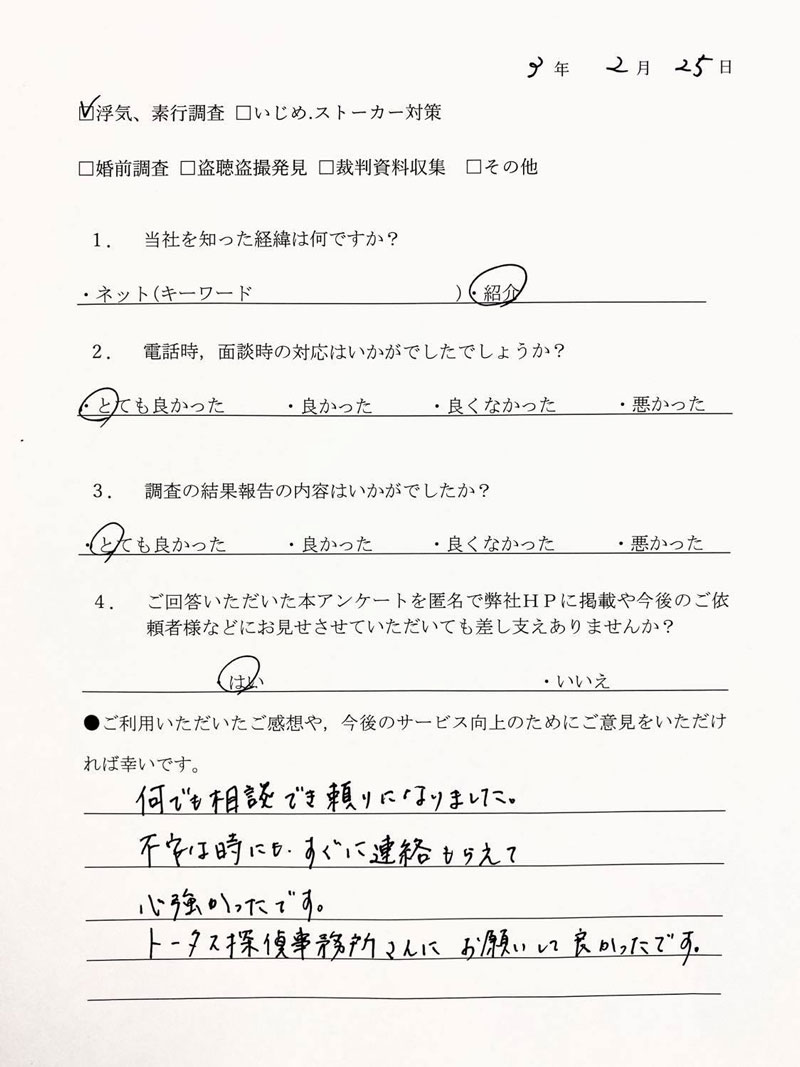 3年 2月 25日
☑浮気、素行調査 □いじめ.ストーカー対策
□婚前調査 □盗聴盗撮発見 □裁判資料収集 □その他
１． 当社を知った経緯は何ですか？
・ネット(キーワード )・紹介
２． 電話時，面談時の対応はいかがでしたでしょうか？
・とても良かった ・良かった ・良くなかった ・悪かった
３． 調査の結果報告の内容はいかがでしたか？
・とても良かった ・良かった ・良くなかった ・悪かった
４． ご回答いただいた本アンケートを匿名で弊社ＨＰに掲載や今後のご依
頼者様などにお見せさせていただいても差し支えありませんか？
・はい ・いいえ
●ご利用いただいたご感想や，今後のサービス向上のためにご意見をいただけ
れば幸いです。
何でも相談でき頼りになりました。
不安な時にも、すぐに連絡もらえて
心強かったです。
トータス探偵事務所さんに お願いして良かったです。